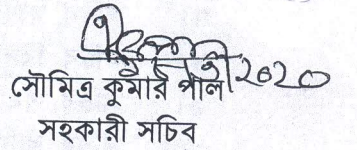 ২০২০
সৌমিত্র কুমার পাল
সহকারী সচিব